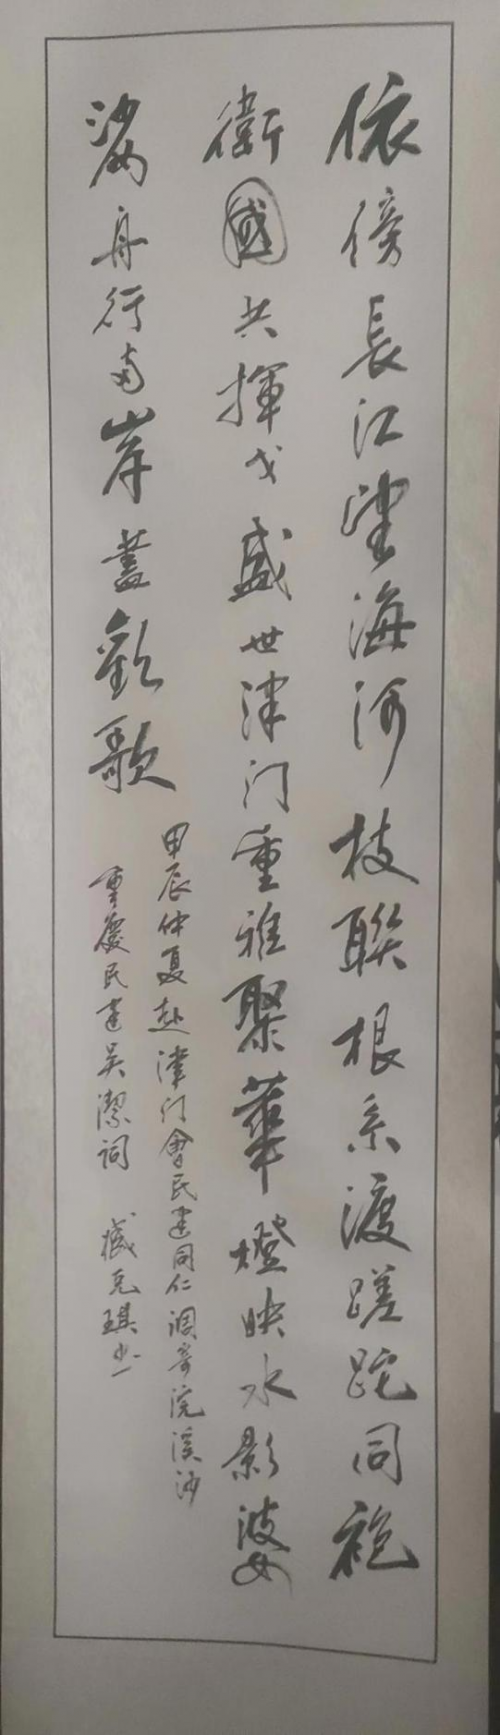 依傍長江望海河枝聯根系渡蹉跎同袍
衛國共揮戈盛世津门重雅聚華燈映水影婆
娑舟行両岸盡歡歌
甲辰仲夏赴津门會民建同仁调寄浣溪沙
重慶民建吴潔词 臧克琪书